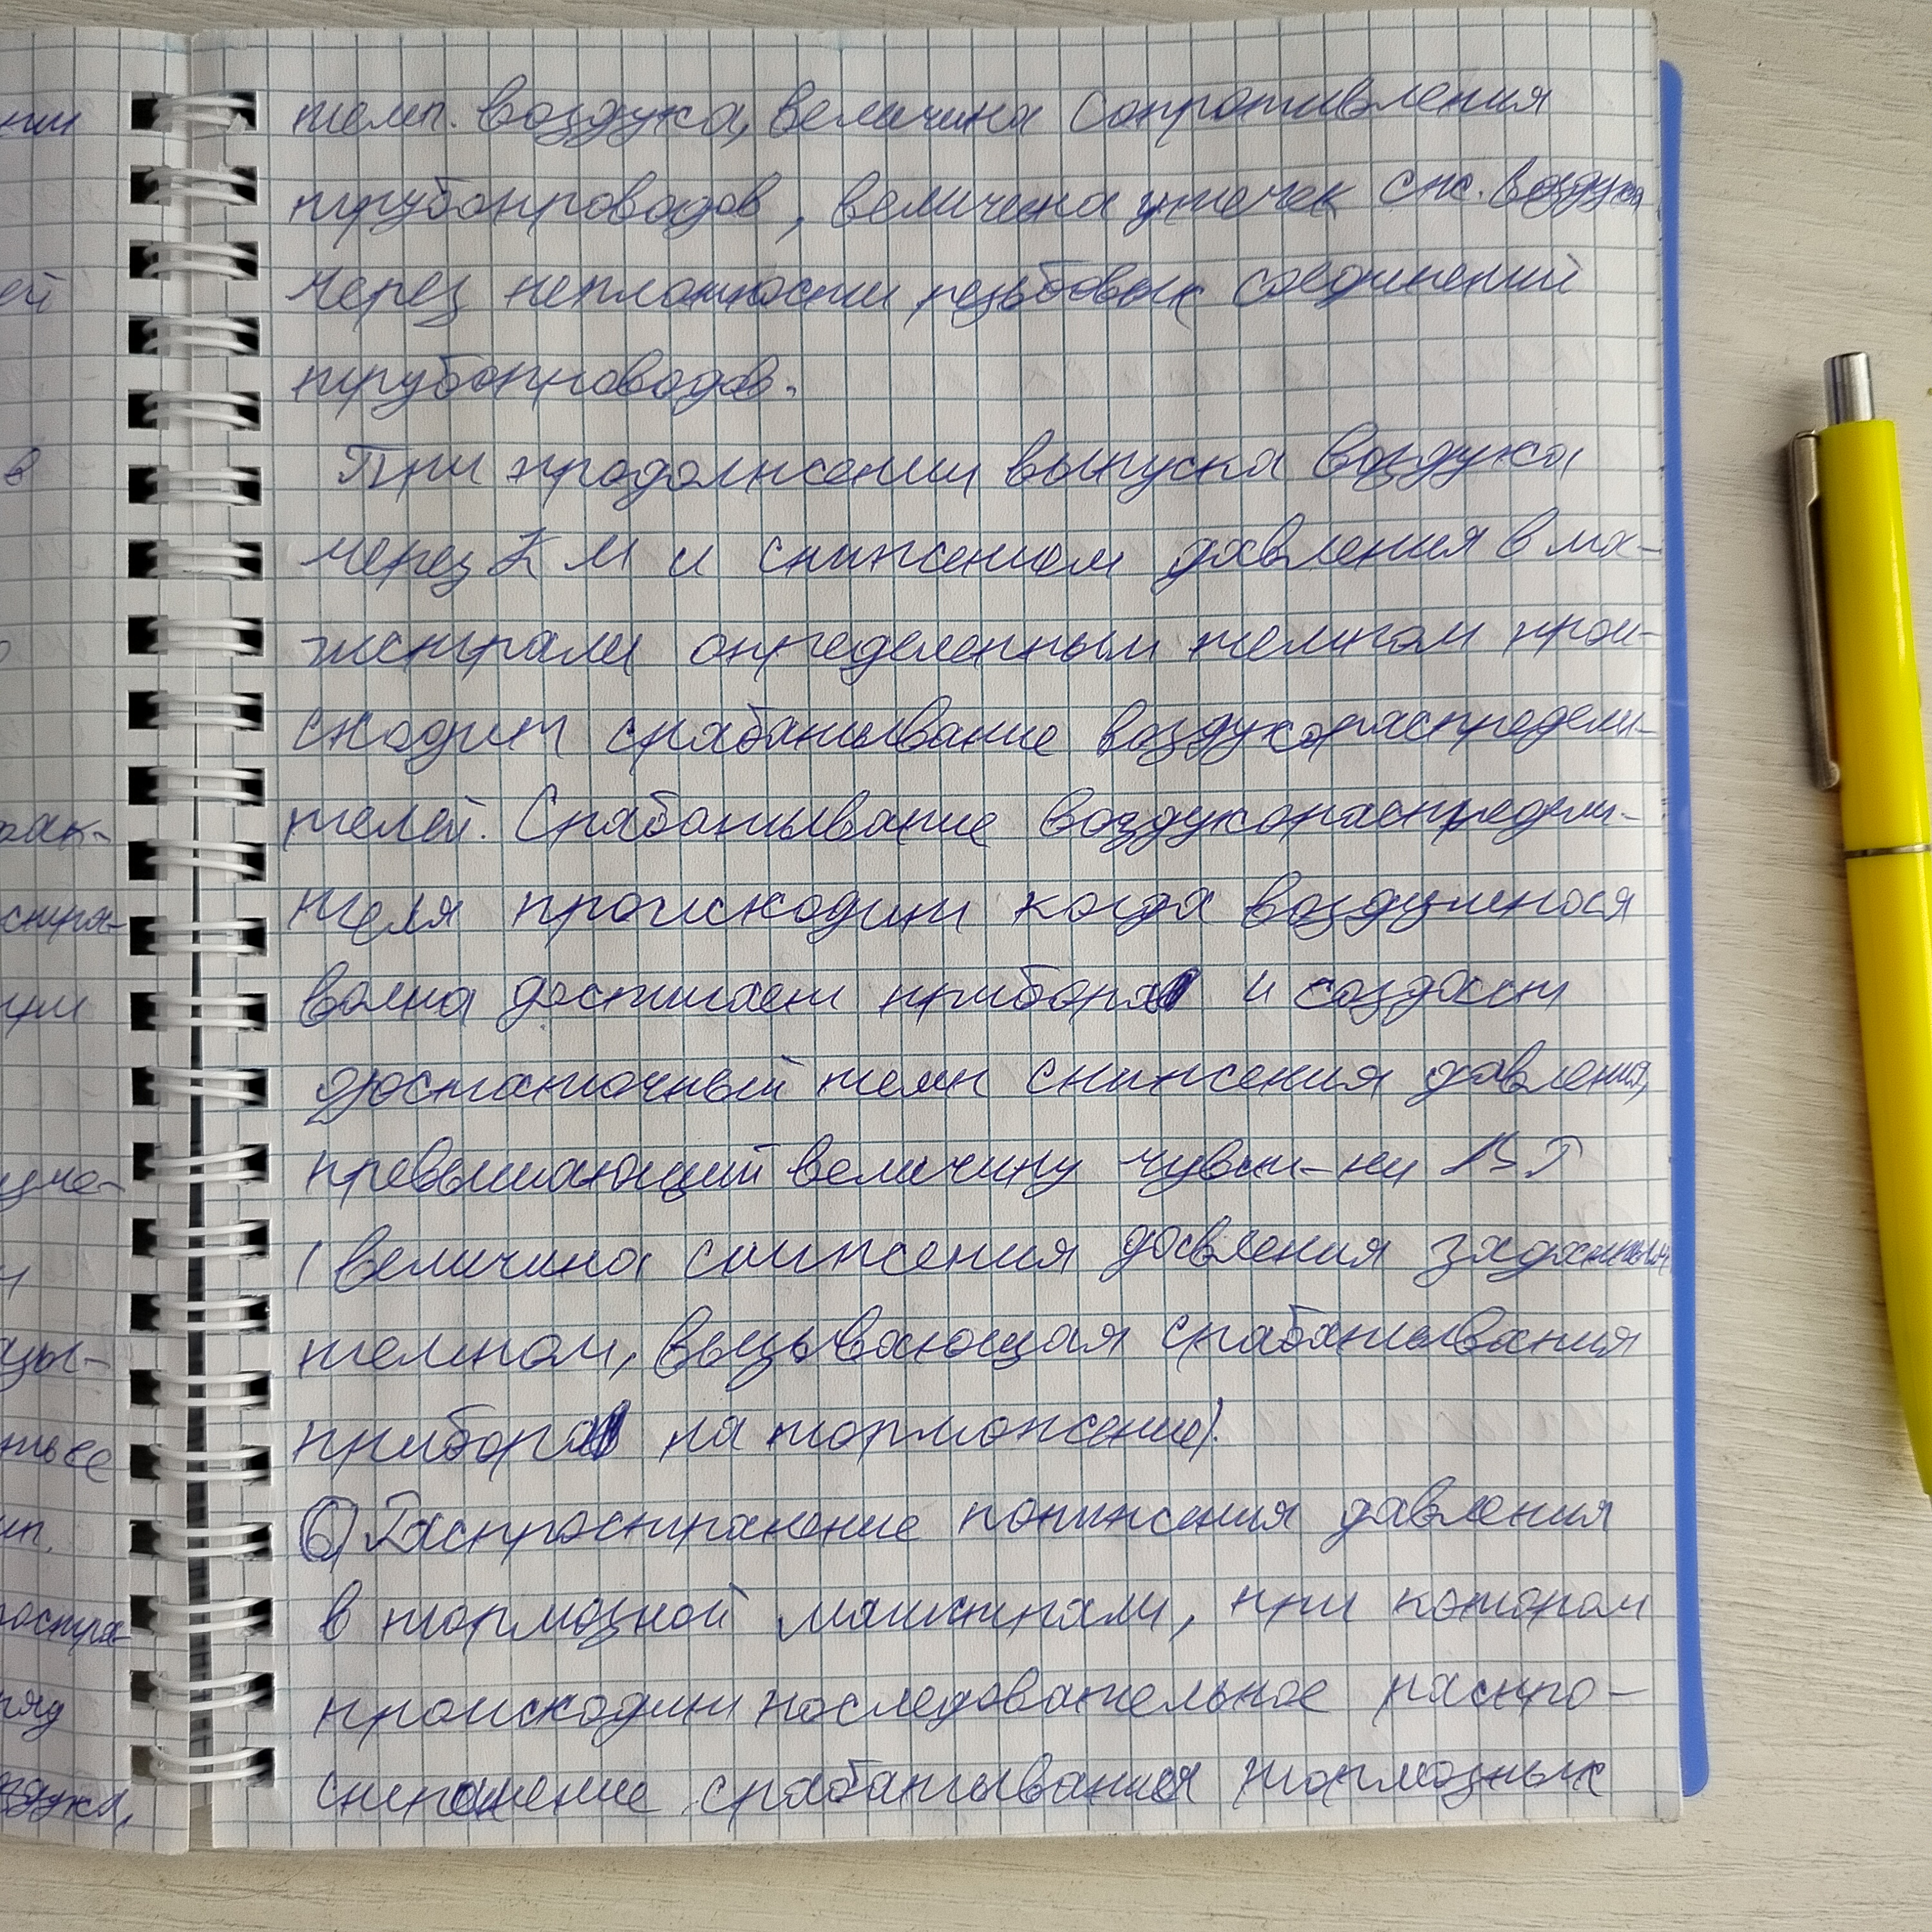 темп. воздуха, величина сопротивления
трубопроводов, величина утечек сж. воздуха
через неплотности резьбовых соединений
трубопроводов.
При продолжении выпуска воздуха
через КМ и снижением давления в ма-
гистрали определенным темпом прои-
сходит срабатывание воздухораспредели-
телей. Срабатывание воздухораспредели-
теля происходит когда воздушная
волна достигает прибора и создаст
достаточный темп снижения давления,
превышающий величину чувст-ти ВР
(величина снижения давления заданным
темпом, вызывающая срабатывания
прибора на торможение).
6) Распространение понижения давления
в тормозной магистрали, при котором
происходит последовательное распро-
странение срабатывания тормозных
нии
ей
в
рак-
стра-
ци-
ть ее
остра-
ряд
здуха,